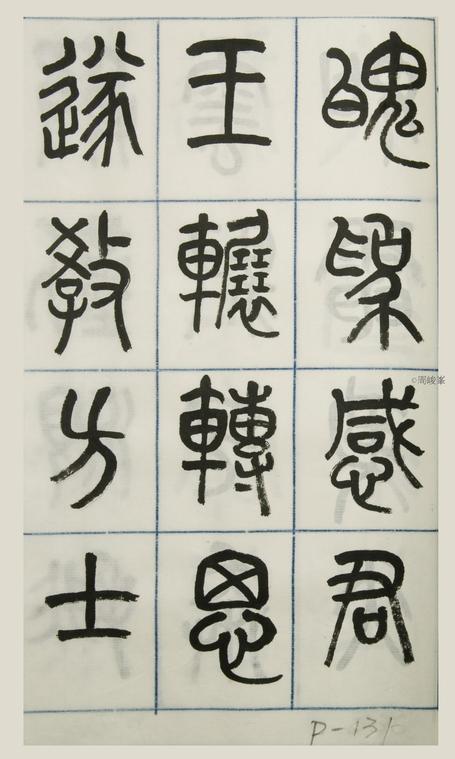 魄為感君
王輾轉思
遂教方士
©周峻峯